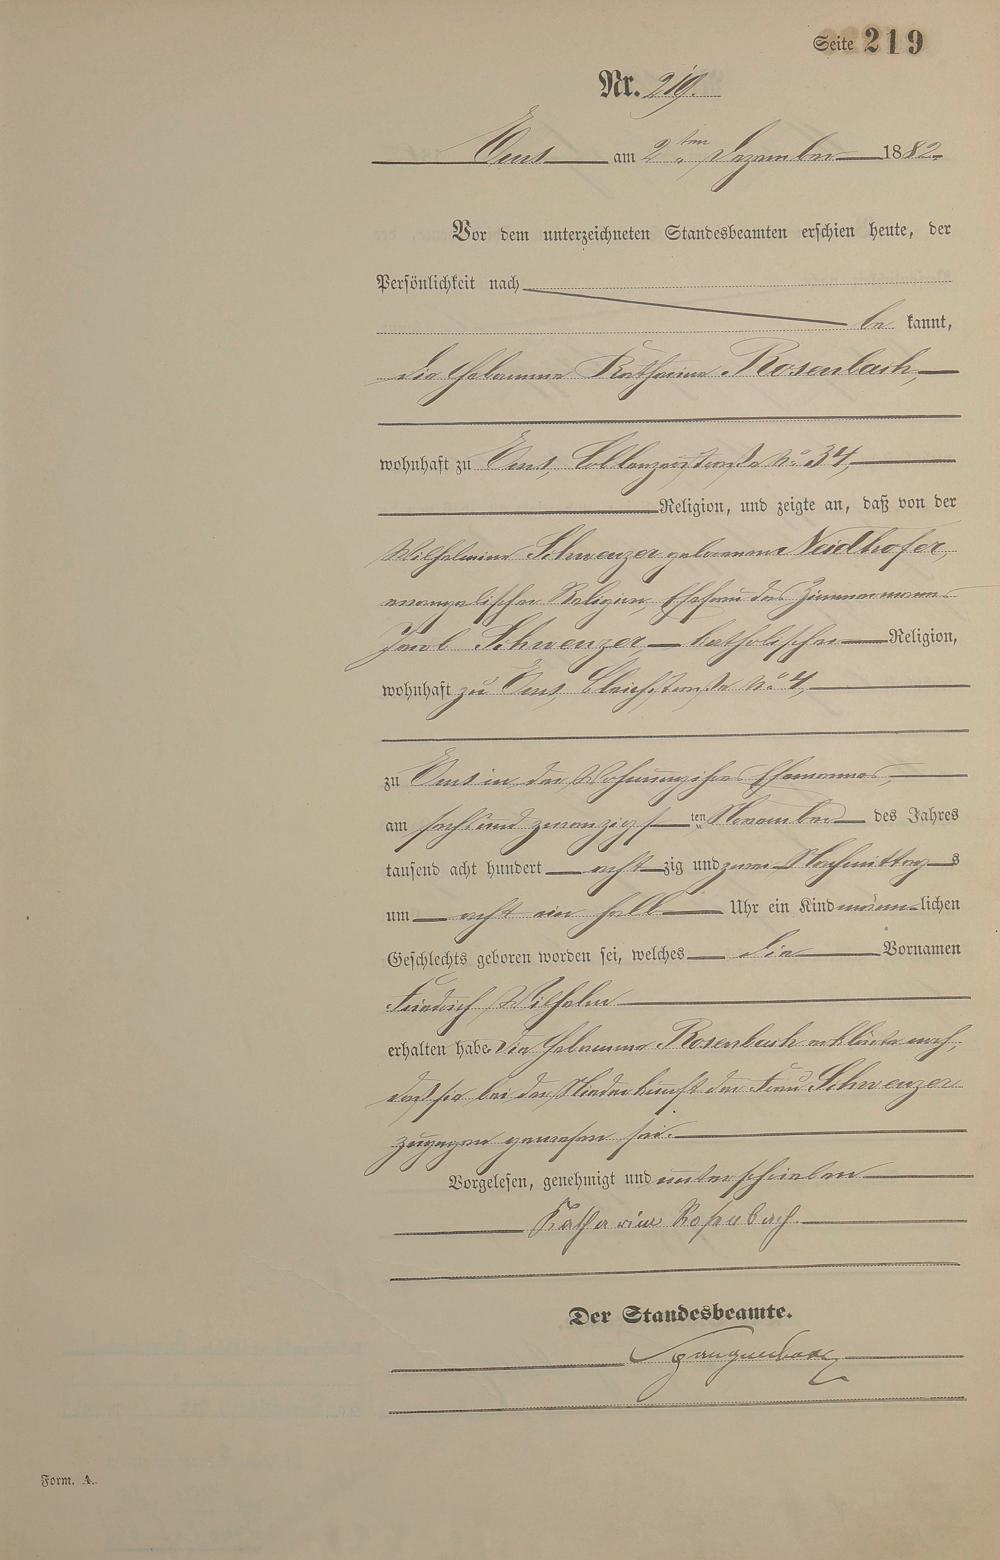 Seite 219
Nr. 219.
Ems am 2ten Dezember 1882.
Vor dem unterzeichneten Standesbeamten erschien heute, der
Persönlichkeit nach
be kannt,
die Hebamme Katharina Rosenbach,
wohnhaft zu Ems, Coblenzerstraße No 34,
Religion, und zeigte an, daß von der
Wilhelmine Schwenzer geborenen Neidhofer,
evangelischer Religion, Ehefrau des Zimmermanns
Jacob Schwenzer katholischer Religion,
wohnhaft zu Ems, Bleichstraße No 4,
zu Ems in der Wohnung ihres Ehemannes,
am sechs und zwanzigsten November des Jahres
tausend acht hundert acht zig und zwei Nachmittags
um acht ein halb Uhr ein Kind männlichen
Geschlechts geboren worden sei, welches die Vornamen
Friedrich Wilhelm
erhalten habe. Die Hebamme Rosenbach erklärte noch,
daß sie bei der Niederkunft der Frau Schwenzer
zugegen gewesen sei.
Vorgelesen, genehmigt und unterschrieben
Katharina Rosenbach.
Der Standesbeamte.
Form. A.